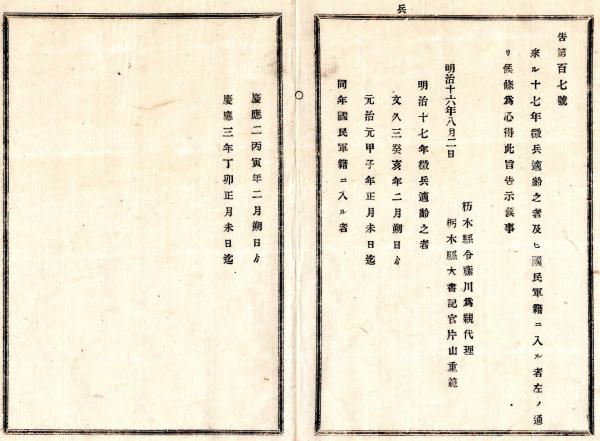 兵
告第百七號
來ル十七年徵兵適齡之者及ヒ國民軍籍ニ入ル者左ノ通
リ候條爲心得此旨告示候事
明治十六年八月二日
栃木縣令藤川爲親代理
栃木縣大書記官片山重範
明治十七年徵兵適齡之者
文久三癸亥年二月朔日ゟ
元治元甲子年正月末日迄
同年國民軍籍ニ入ル者
慶應二丙寅年二月朔日ゟ
慶應三年丁卯正月末日迄